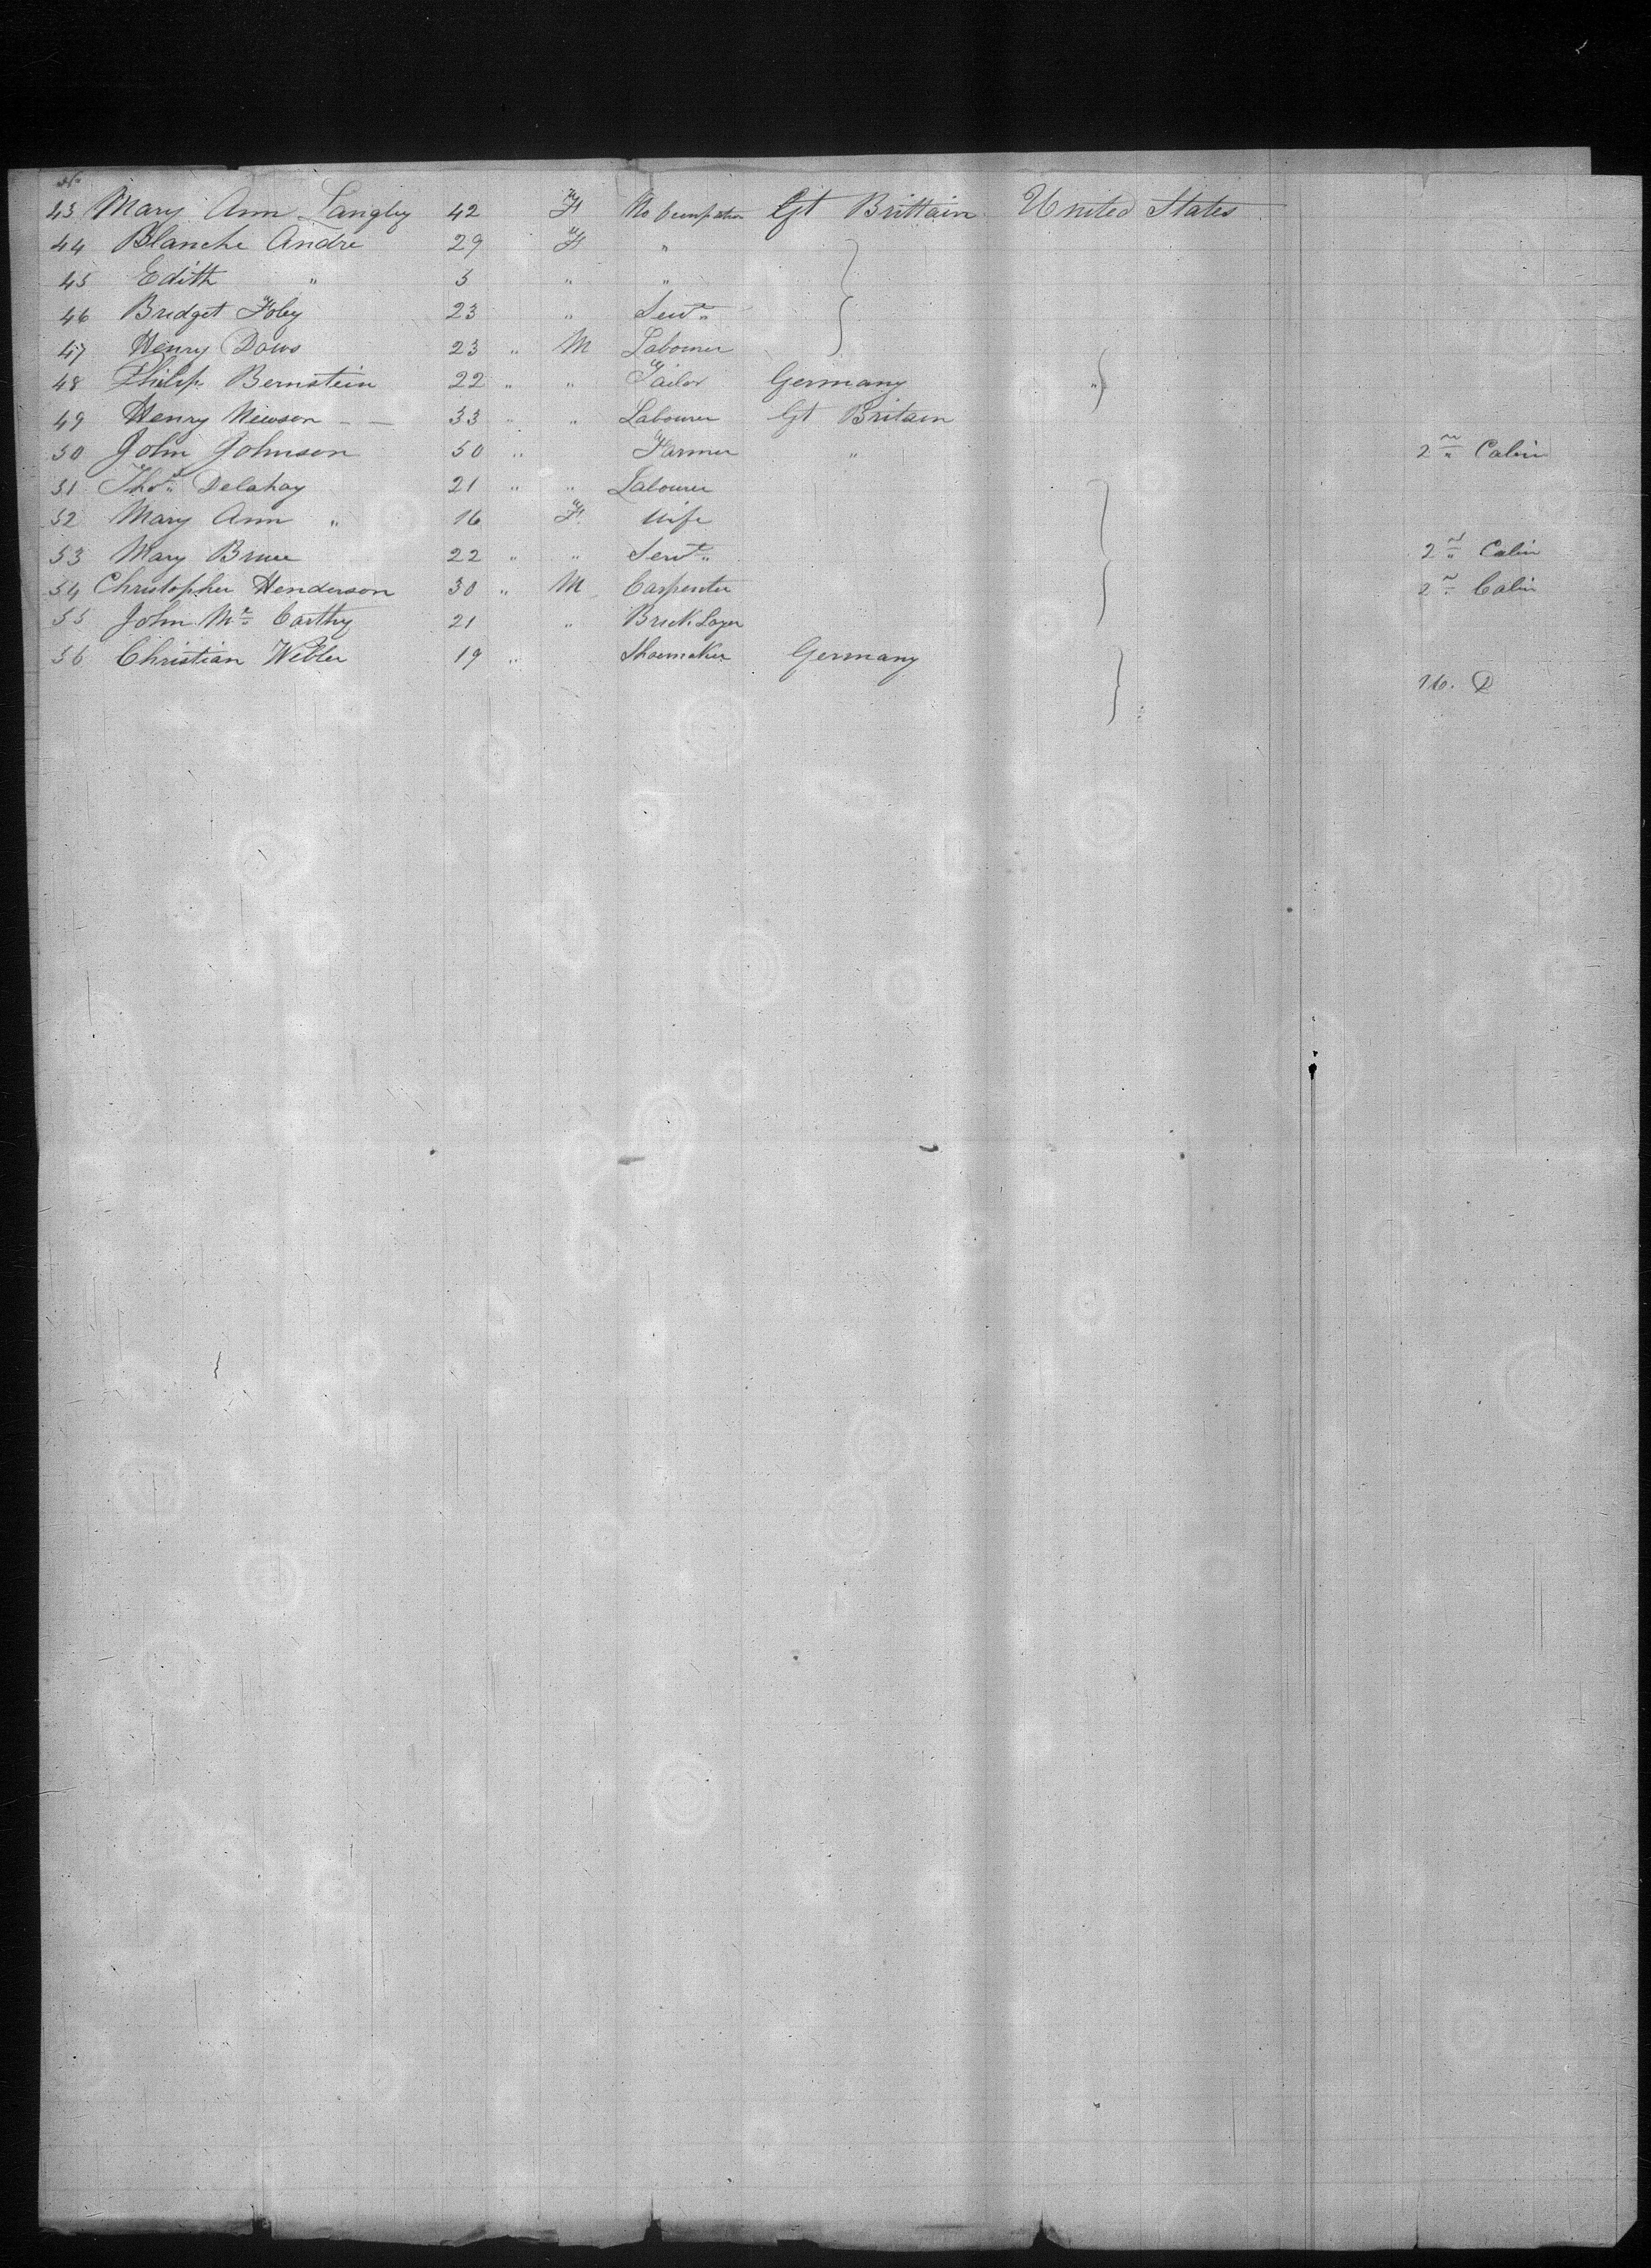 43 Mary Ann Langley 42 F No Occupation Gt Brittain United States
44 Blanche Andre 29 F "
45 Edith " 5 " "
46 Bridget Foley 23 " Servt
47 Henry Daws 23 " M Labourer
48 Philip Bernstein 22 " " Tailor Germany "
49 Henry Newson - - 33 " " Labourer Gt Britain
50 John Johnson 50 " Farmer " 2nd Cabin
51 Thos Delahay 21 " " Labourer
52 Mary Ann " 16 F Wife
53 Mary Bruce 22 " " Servt 2nd Cabin
54 Christopher Henderson 30 " M Carpenter 2nd Cabin
55 John Mc Carthy 21 " Brick Layer
56 Christian Webler 19 " Shoemaker Germany
16. D